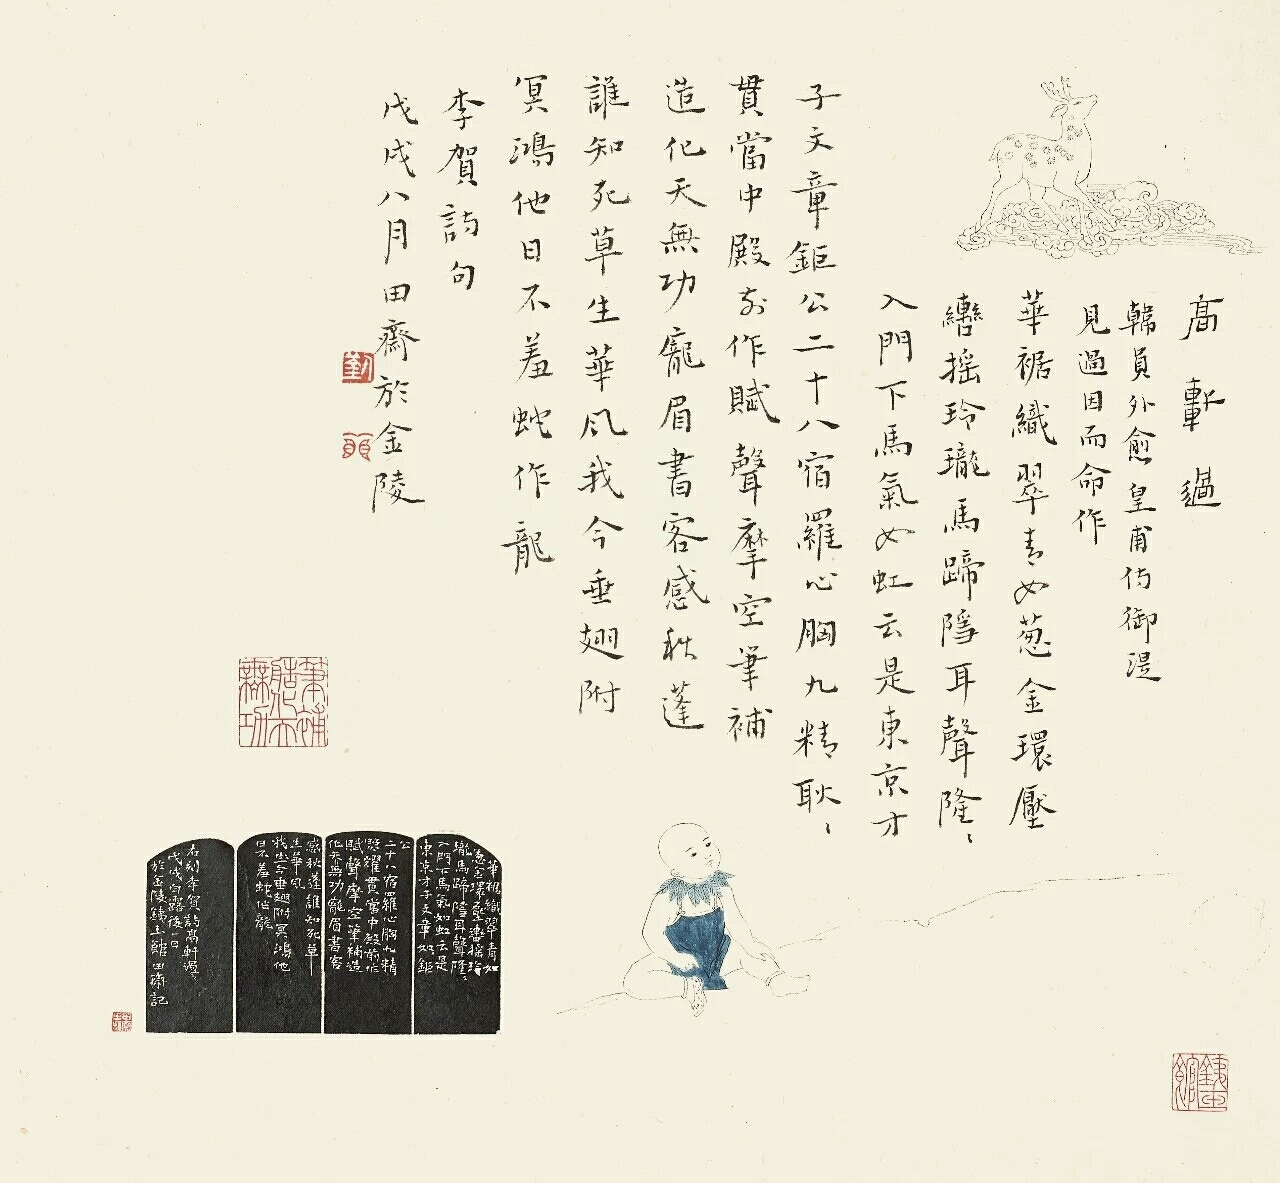 高軒過
韓員外愈皇甫侍御湜
見過因而命作
華裾織翠青如葱金環壓
轡摇玲瓏馬蹄隱耳聲隆〻
入門下馬氣如虹云是東京才
子文章鉅公二十八宿羅心胸九精耿〻
貫當中殿前作賦聲摩空筆補
造化天無功龐眉書客感秋蓬
誰知死草生華風我今垂翅附
冥鴻他日不羞蛇作龍
李賀詩句
戊戌八月田齋於金陵
筆補造化天無功
華裾織翠青如
葱金環壓轡摇玲
瓏馬蹄隱耳聲隆〻
入門下馬氣如虹云是
東京才子文章如鉅
公
二十八宿羅心胸九精
耀貫當中殿前作
賦聲摩空筆補造
化天無功龐眉書客
感秋蓬誰知死草
生華風
我今垂翅附冥鴻他
日不羞蛇作龍
右刻李賀詩高軒過
戊戌白露後一日
於金陵館田齋記